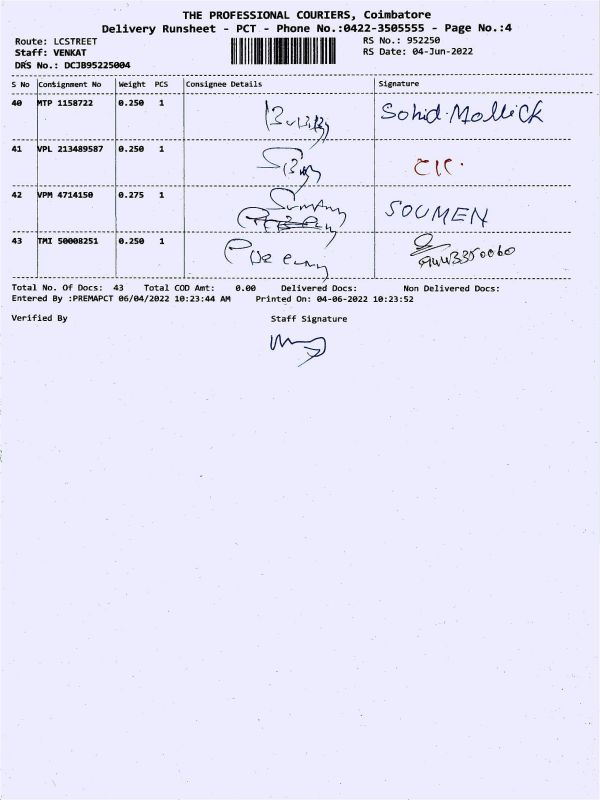 THE PROFESSIONAL COURIERS, Coimbatore
Delivery Runsheet - PCT - Phone No.:0422-3505555 - Page No.:4
Route: LCSTREET RS No.: 952250
Staff: VENKAT RS Date: 04-Jun-2022
DRS No.: DCJB95225004
S No Consignment No Weight PCS Consignee Details Signature
40 MTP 1158722 0.250 1 Sohid.Mollick
41 VPL 213489587 0.250 1
42 VPM 4714150 0.275 1 SOUMEN
43 TMI 50008251 0.250 1
Total No. Of Docs: 43 Total COD Amt: 0.00 Delivered Docs: Non Delivered Docs:
Entered By :PREMAPCT 06/04/2022 10:23:44 AM Printed On: 04-06-2022 10:23:52
Verified By Staff Signature